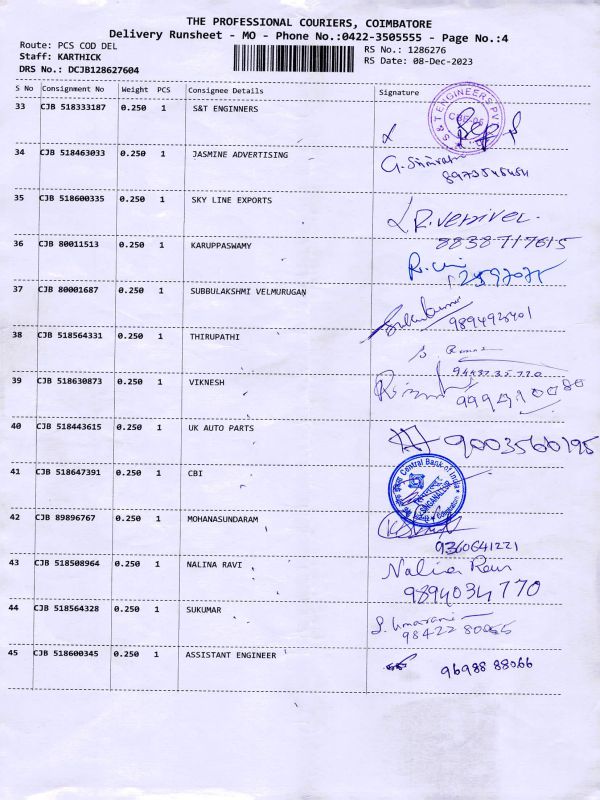 THE PROFESSIONAL COURIERS, COIMBATORE
Delivery Runsheet - MO - Phone No.:0422-3505555 - Page No.:4
Route: PCS COD DEL
Staff: KARTHICK
DRS No.: DCJB128627604
RS No.: 1286276
RS Date: 08-Dec-2023
S No Consignment No Weight PCS Consignee Details Signature
33 CJB 518333187 0.250 1 S&T ENGINNERS
S & T ENGINEERS PVT
34 CJB 518463033 0.250 1 JASMINE ADVERTISING
35 CJB 518600335 0.250 1 SKY LINE EXPORTS
8838717615
36 CJB 80011513 0.250 1 KARUPPASWAMY
37 CJB 80001687 0.250 1 SUBBULAKSHMI VELMURUGAN
38 CJB 518564331 0.250 1 THIRUPATHI
39 CJB 518630873 0.250 1 VIKNESH
40 CJB 518443615 0.250 1 UK AUTO PARTS 9003566195
41 CJB 518647391 0.250 1 CBI
Central Bank of India
42 CJB 89896767 0.250 1 MOHANASUNDARAM
9360641221
43 CJB 518508964 0.250 1 NALINA RAVI Nalina Ravi
9894034770
44 CJB 518564328 0.250 1 SUKUMAR
98422 80055
45 CJB 518600345 0.250 1 ASSISTANT ENGINEER 96988 88066